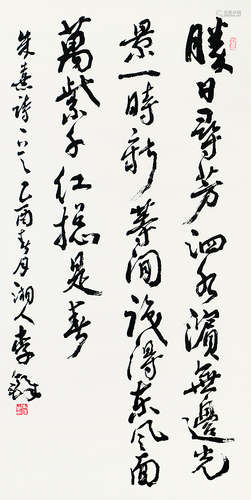 勝日尋芳泗水濱無邊光
景一時新等閒識得東風面
萬紫千紅總是春
朱熹詩一首乙酉春月湘人李鐸